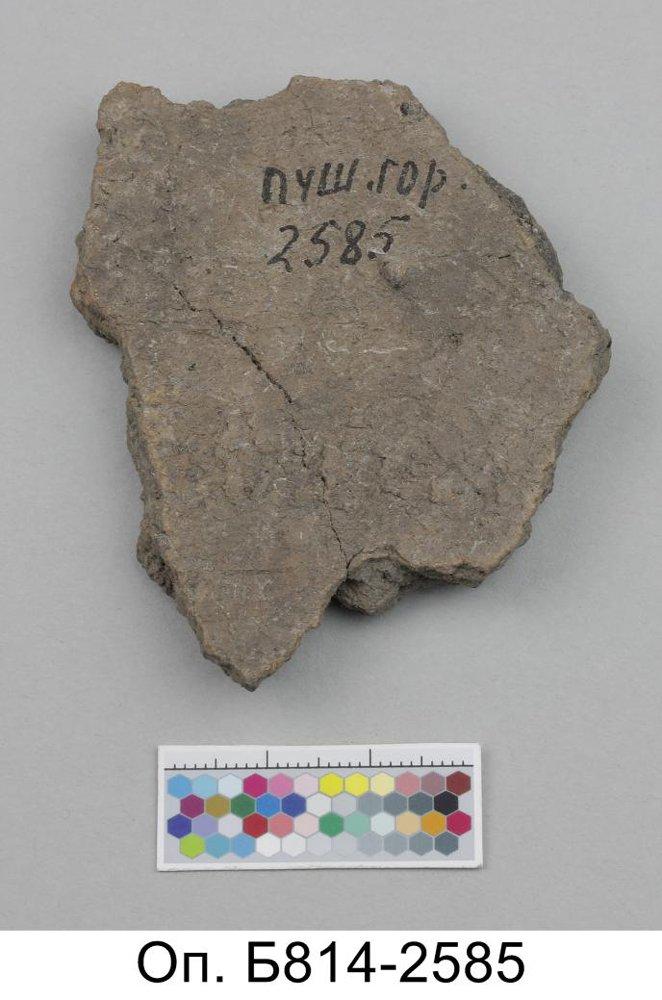 пуш.гор.
2585
Оп. Б814-2585